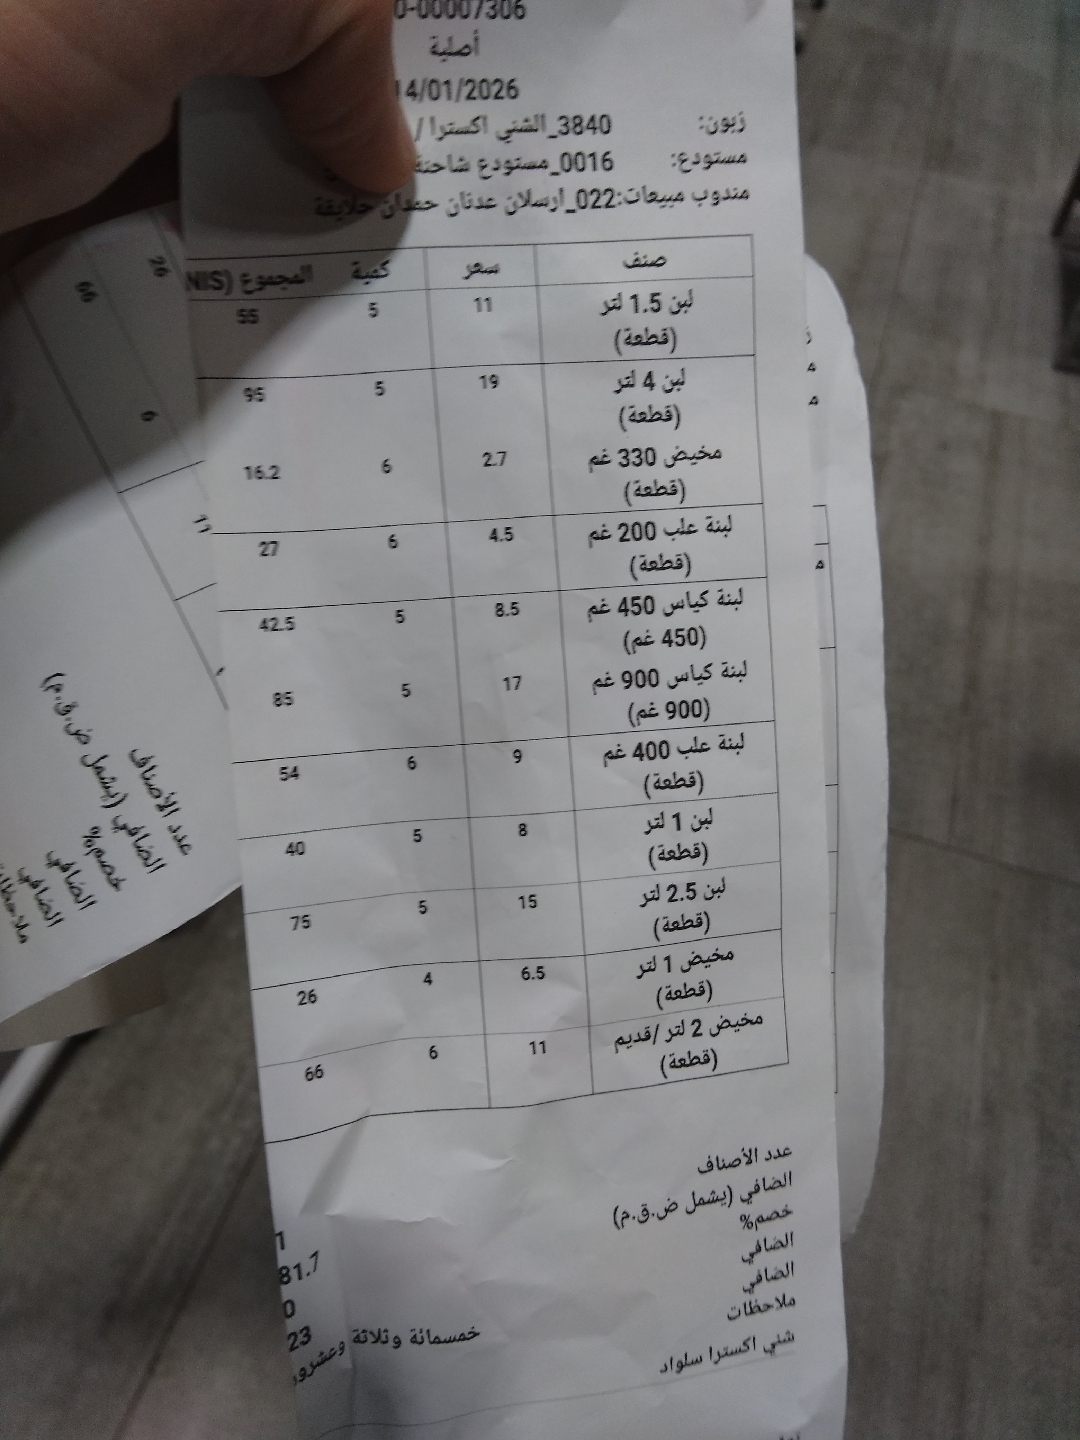 0-00007306
أصلية
14/01/2026
زبون: 3840_الشني اكسترا /
مستودع: 0016_مستودع شاحنة
مندوب مبيعات:022_ارسلان عدنان حمدان حلايقة
صنف سعر كمية المجموع (NIS
لبن 1.5 لتر 11 5 55
(قطعة)
لبن 4 لتر 19 5 95
(قطعة)
مخيض 330 غم 2.7 6 16.2
(قطعة)
لبنة علب 200 غم 4.5 6 27
(قطعة)
لبنة كياس 450 غم 8.5 5 42.5
(450 غم)
لبنة كياس 900 غم 17 5 85
(900 غم)
لبنة علب 400 غم 9 6 54
(قطعة)
لبن 1 لتر 8 5 40
(قطعة)
لبن 2.5 لتر 15 5 75
(قطعة)
مخيض 1 لتر 6.5 4 26
(قطعة)
مخيض 2 لتر /قديم 11 6 66
(قطعة)
عدد الأصناف 1
الضافي (يشمل ض.ق.م) 81.7
خصم% 0
الضافي 23
الضافي خمسمائة وثلاثة وعشرور
ملاحظات
شني اكسترا سلواد
26
66
6
11
عدد الأصناف
الضافي (يشمل ض.ق.م)
خصم%
الضافي
الضافي
ملاحظات